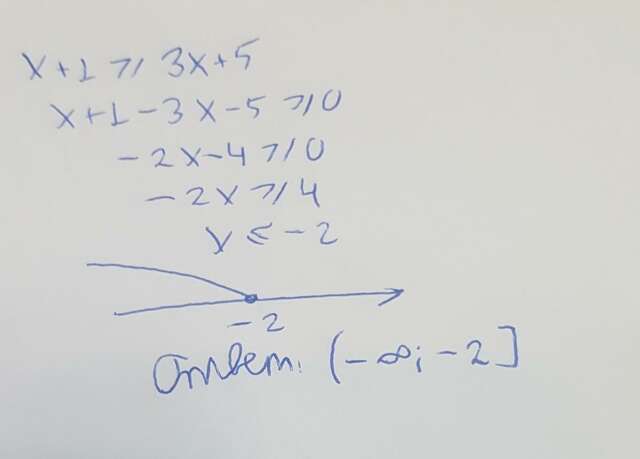 x+1 ⩾ 3x+5
x+1-3x-5 ⩾ 0
-2x-4 ⩾ 0
-2x ⩾ 4
x ⩽ -2
-2
Ответ: (-∞; -2]